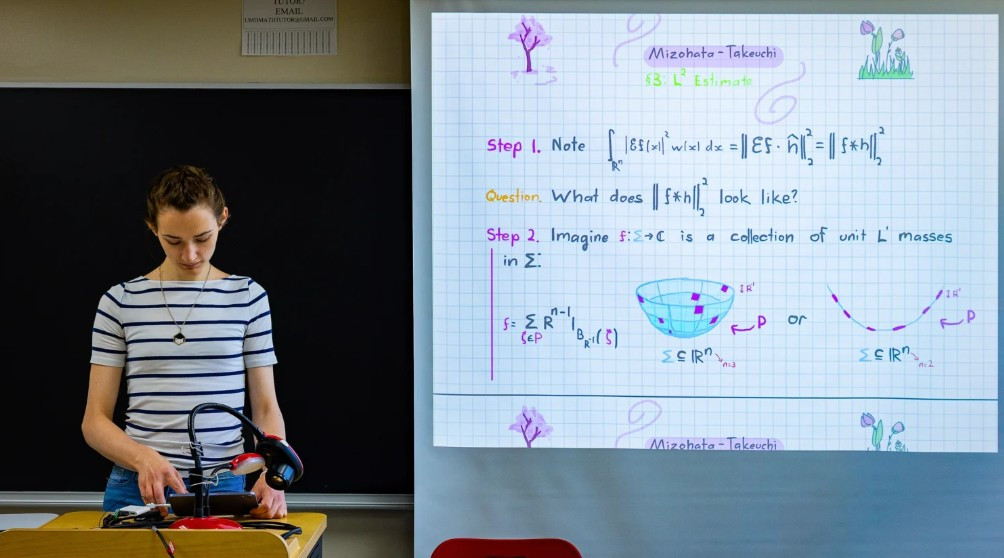 TUTOR?
EMAIL
UMDMATHTUTOR@GMAIL.COM
Mizohata-Takeuchi
§3: L² Estimate
Step 1. Note ∫_{ℝⁿ} |Ef(x)|² w(x) dx = ‖Ef · ĥ‖₂² = ‖f*h‖₂²
Question. What does ‖f*h‖₂² look like?
Step 2. Imagine f:Σ→ℂ is a collection of unit L¹ masses
in Σ:
f = Σ_{ζ∈P} R^{n-1} 1_{B_{R^{-1}}(ζ)}
↕R⁻¹
P
or
↕R⁻¹
P
Σ ⊆ ℝⁿ n=3
Σ ⊆ ℝⁿ n=2
Mizohata-Takeuchi